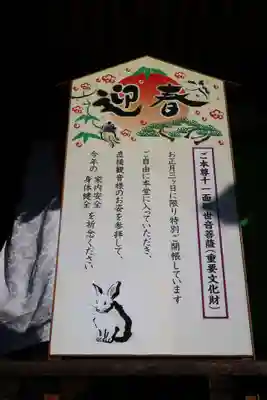 迎春
ご本尊十一面観世音菩薩(重要文化財)
お正月三ヶ日に限り特別ご開帳しています
ご自由に本堂に入っていただき、
直接観音様のお姿を参拝して、
今年の 家内安全 身体健全 を祈念ください